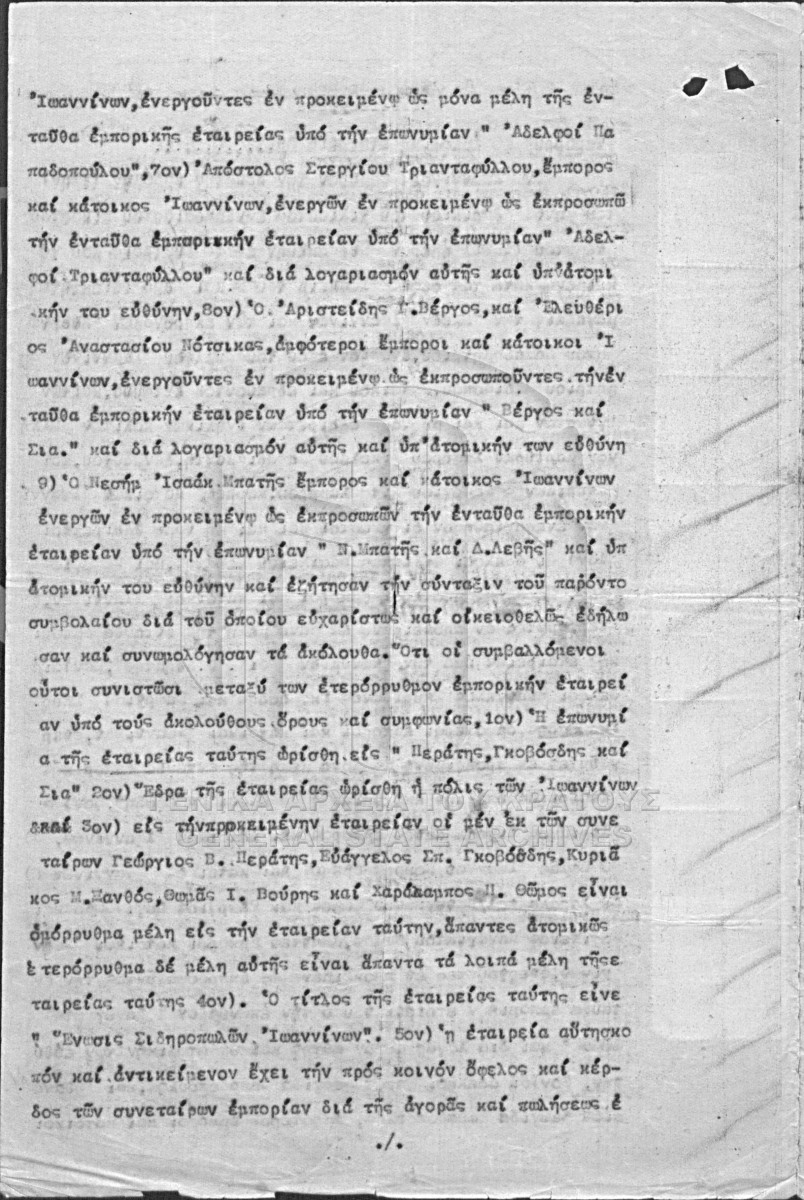 Ἰωαννίνων,ἐνεργοῦντες ἐν προκειμένῳ ὡς μόνα μέλη τῆς ἐν-
ταῦθα ἐμπορικῆς ἑταιρείας ὑπό τήν ἐπωνυμίαν " Ἀδελφοί Πα
παδοπούλου",7ον) Ἀπόστολος Στεργίου Τριανταφύλλου,ἔμπορος
καί κάτοικος Ἰωαννίνων,ἐνεργῶν ἐν προκειμένῳ ὡς ἐκπροσωπῶ
τήν ἐνταῦθα ἐμπορικήν ἑταιρείαν ὑπό τήν ἐπωνυμίαν" Ἀδελ-
φοί Τριανταφύλλου" καί διά λογαριασμόν αὐτῆς καί ὑπ'ἀτομι
κήν του εὐθύνην,8ον) Ὁ. Ἀριστείδης Γ.Βέργος,καί Ἐλευθέρι
ος Ἀναστασίου Νότσικας,ἀμφότεροι ἔμποροι καί κάτοικοι Ἰ
ωαννίνων,ἐνεργοῦντες ἐν προκειμένῳ ὡς ἐκπροσωποῦντες τήνἐν
ταῦθα ἐμπορικήν ἑταιρείαν ὑπό τήν ἐπωνυμίαν " Βέργος καί
Σια." καί διά λογαριασμόν αὐτῆς καί ὑπ'ἀτομικήν των εὐθύνη
9) Ὁ Νεσήμ Ἰσαάκ Μπατῆς ἔμπορος καί κάτοικος Ἰωαννίνων
ἐνεργῶν ἐν προκειμένῳ ὡς ἐκπροσωπῶν τήν ἐνταῦθα ἐμπορικήν
ἑταιρείαν ὑπό τήν ἐπωνυμίαν " Ν.Μπατῆς καί Δ.Λεβῆς" καί ὑπ
ἀτομικήν του εὐθύνην καί ἐζήτησαν τήν σύνταξιν τοῦ παρόντο
συμβολαίου διά τοῦ ὁποίου εὐχαρίστως καί οἰκειοθελῶς ἐδήλω
σαν καί συνωμολόγησαν τά ἀκόλουθα.Ὅτι οἱ συμβαλλόμενοι
οὗτοι συνιστῶσι μεταξύ των ἑτερόρρυθμον ἐμπορικήν ἑταιρεί
αν ὑπό τούς ἀκολούθους ὅρους καί συμφωνίας,1ον) Ἡ ἐπωνυμί
α τῆς ἑταιρείας ταύτης ὡρίσθη εἰς " Περάτης,Γκοβόσδης καί
Σια" 2ον) Ἕδρα τῆς ἑταιρείας ὡρίσθη ἡ πόλις τῶν Ἰωαννίνων
καί 3ον) εἰς τήνπροκειμένην ἑταιρείαν οἱ μέν ἐκ τῶν συνε
ταίρων Γεώργιος Β. Περάτης,Εὐάγγελος Σπ. Γκοβόσδης,Κυριᾶ
κος Μ.Ξανθός,Θωμᾶς Ι. Βούρης καί Χαράλαμπος Π. Θῶμος εἶναι
ὁμόρρυθμα μέλη εἰς τήν ἑταιρείαν ταύτην,ἅπαντες ἀτομικῶς
ἑτερόρρυθμα δέ μέλη αὐτῆς εἶναι ἅπαντα τά λοιπά μέλη τῆςε
ταιρείας ταύτης 4ον). Ὁ τίτλος τῆς ἑταιρείας ταύτης εἶνε
" Ἕνωσις Σιδηροπωλῶν Ἰωαννίνων". 5ον) ἡ ἑταιρεία αὕτησκο
πόν καί ἀντικείμενον ἔχει τήν πρός κοινόν ὄφελος καί κέρ-
δος τῶν συνεταίρων ἐμπορίαν διά τῆς ἀγορᾶς καί πωλήσεως ἐ
./.
ΓΕΝΙΚΑ ΑΡΧΕΙΑ ΤΟΥ ΚΡΑΤΟΥΣ
GENERAL STATE ARCHIVES